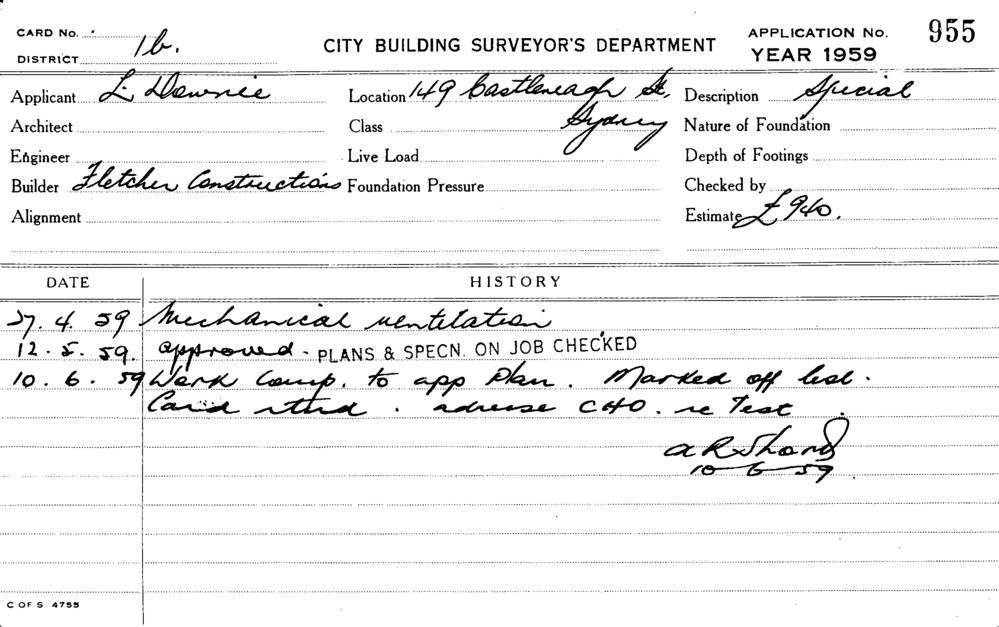 CARD No.
DISTRICT 1b.
CITY BUILDING SURVEYOR'S DEPARTMENT
APPLICATION No. 955
YEAR 1959
Applicant L. Downie Location 149 Castlereagh St, Description Special
Architect Class Sydney Nature of Foundation
Engineer Live Load Depth of Footings
Builder Fletcher Constructions Foundation Pressure Checked by
Alignment Estimate £940.
DATE HISTORY
27. 4. 59 Mechanical ventilation
12. 5. 59. approved. PLANS & SPECN. ON JOB CHECKED
10. 6. 59 Work Comp. to app Plan. Marked off
Card rtnd. advise CHO. re Test.
A R Shand
10 6 59
C OF S 4755